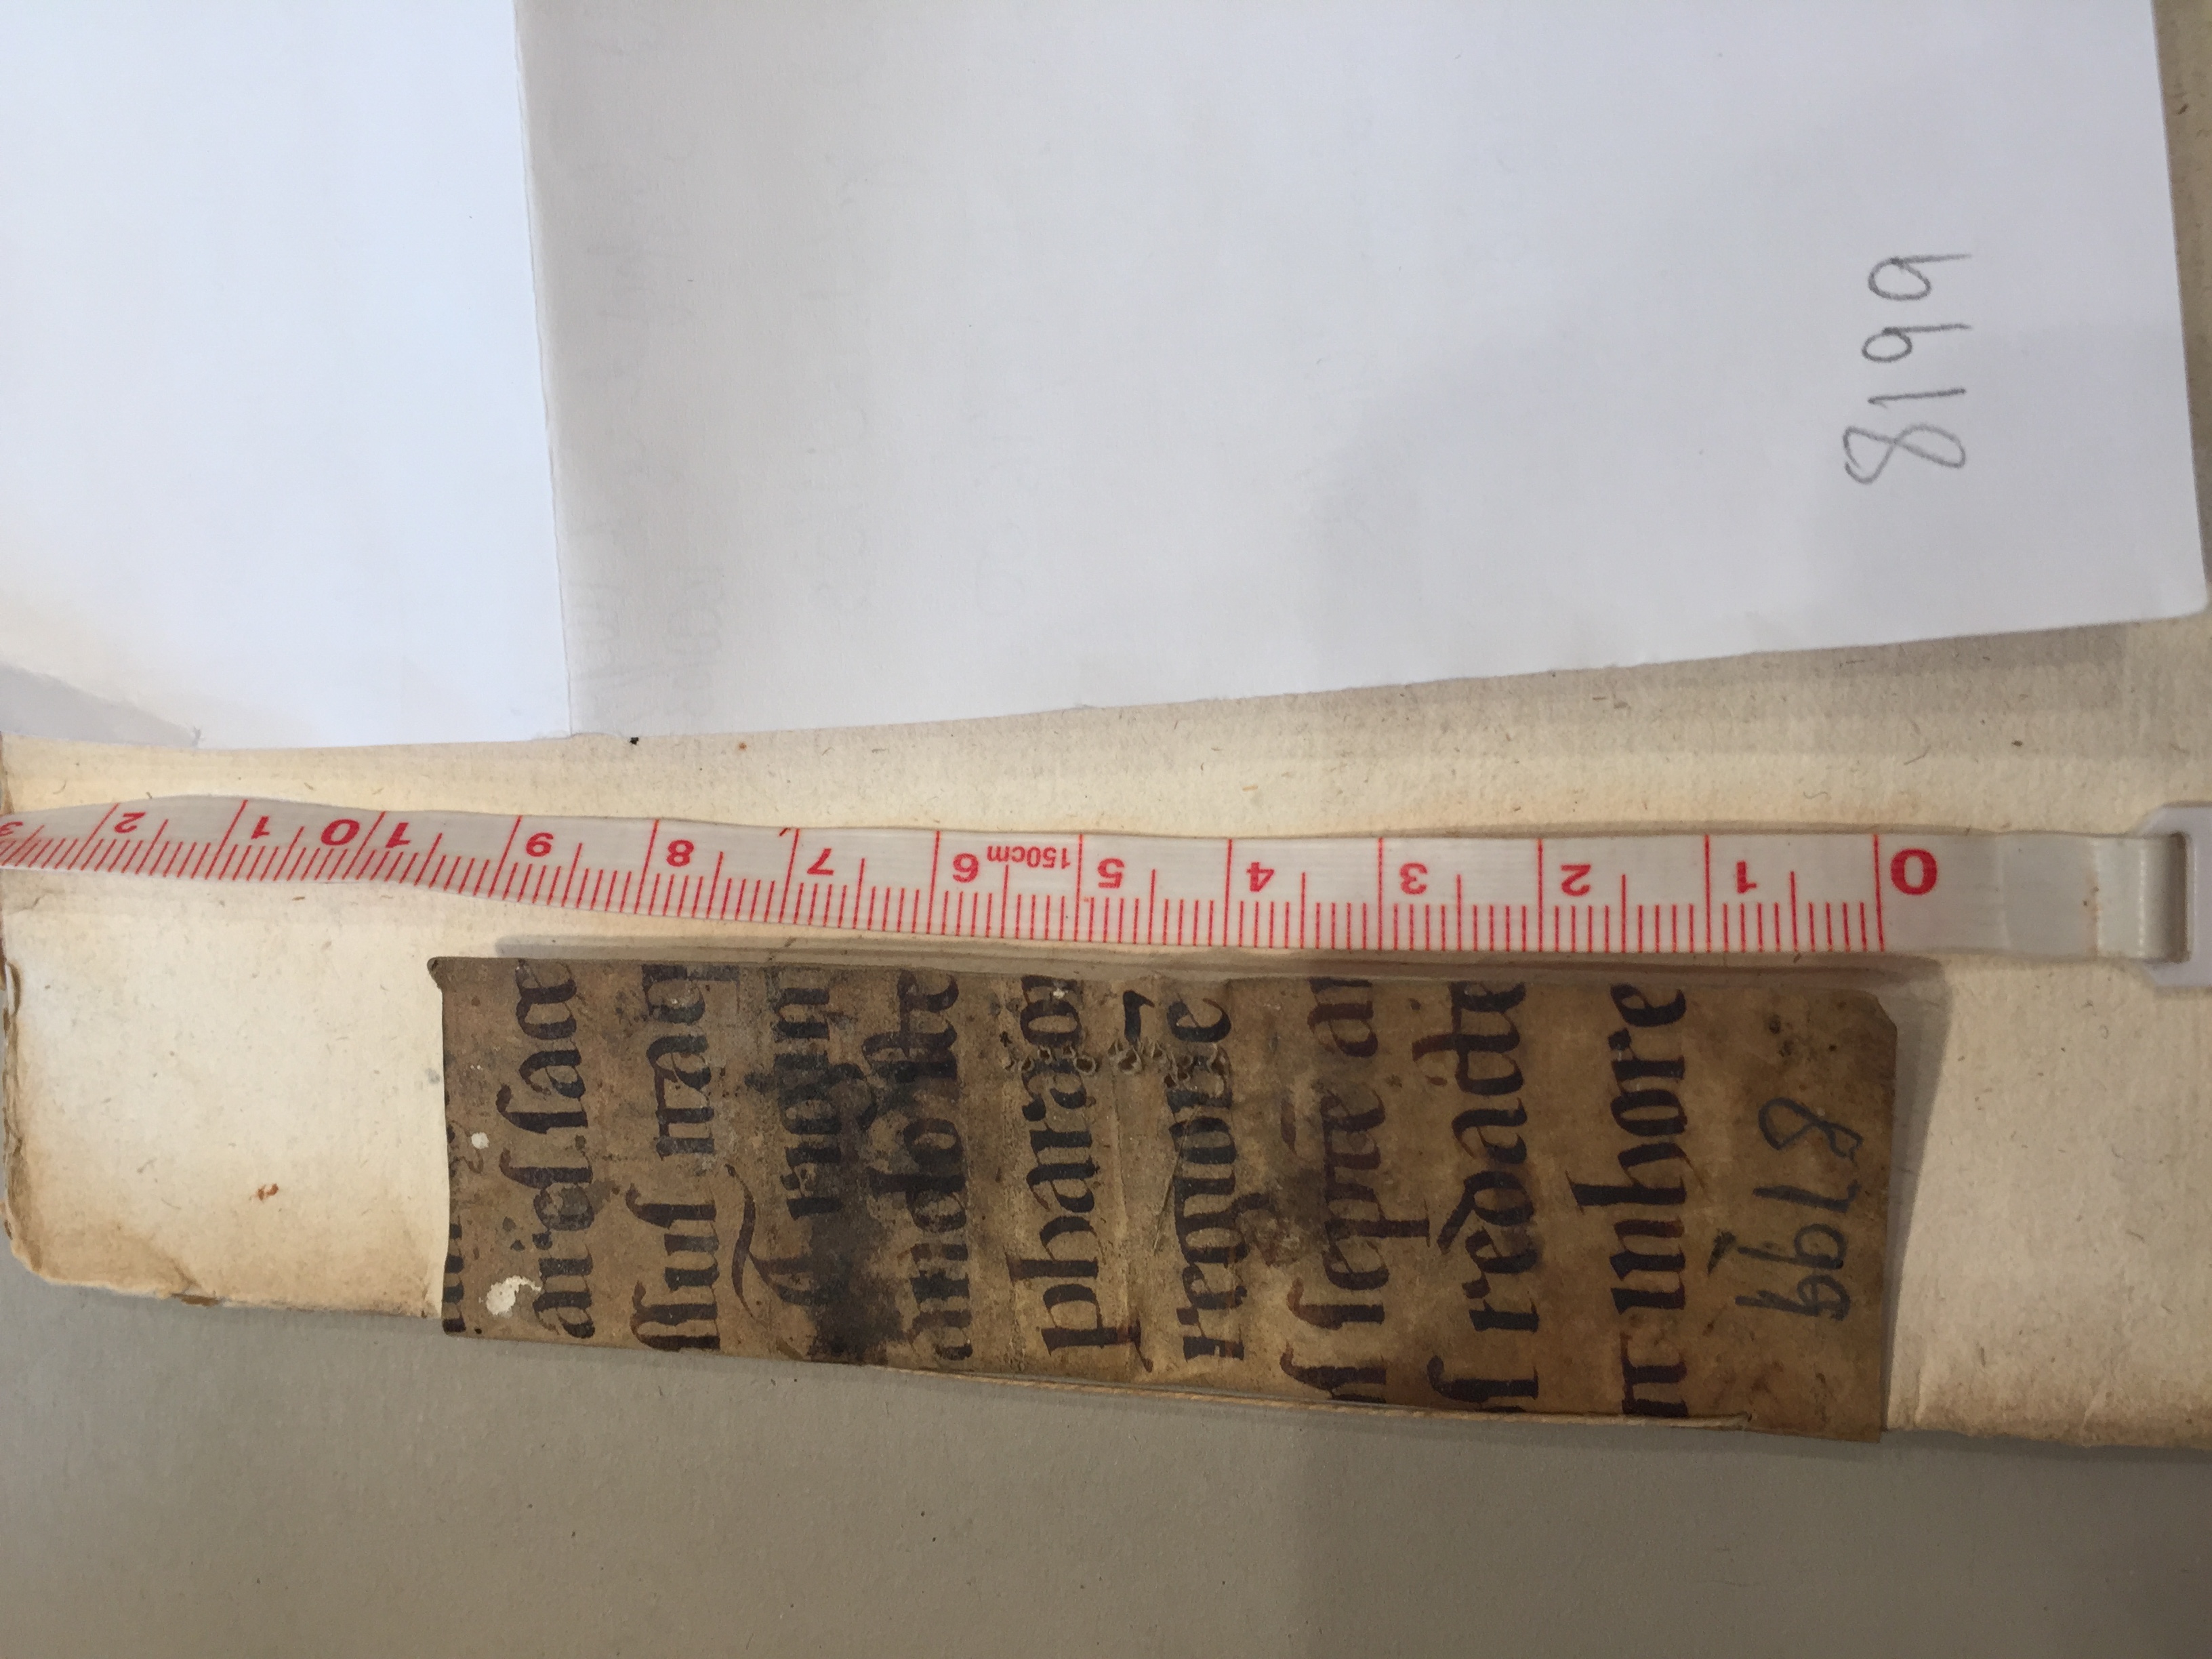 arẽſ ſace
ſſuſ itaq
Trigin
ando ſte
pharaon
regionẽ
ſ ſeptẽ an
ſ redacte
nt inhore
8199
3
2
1
10
9
8
7
6
150cm
5
4
3
2
1
0
8199